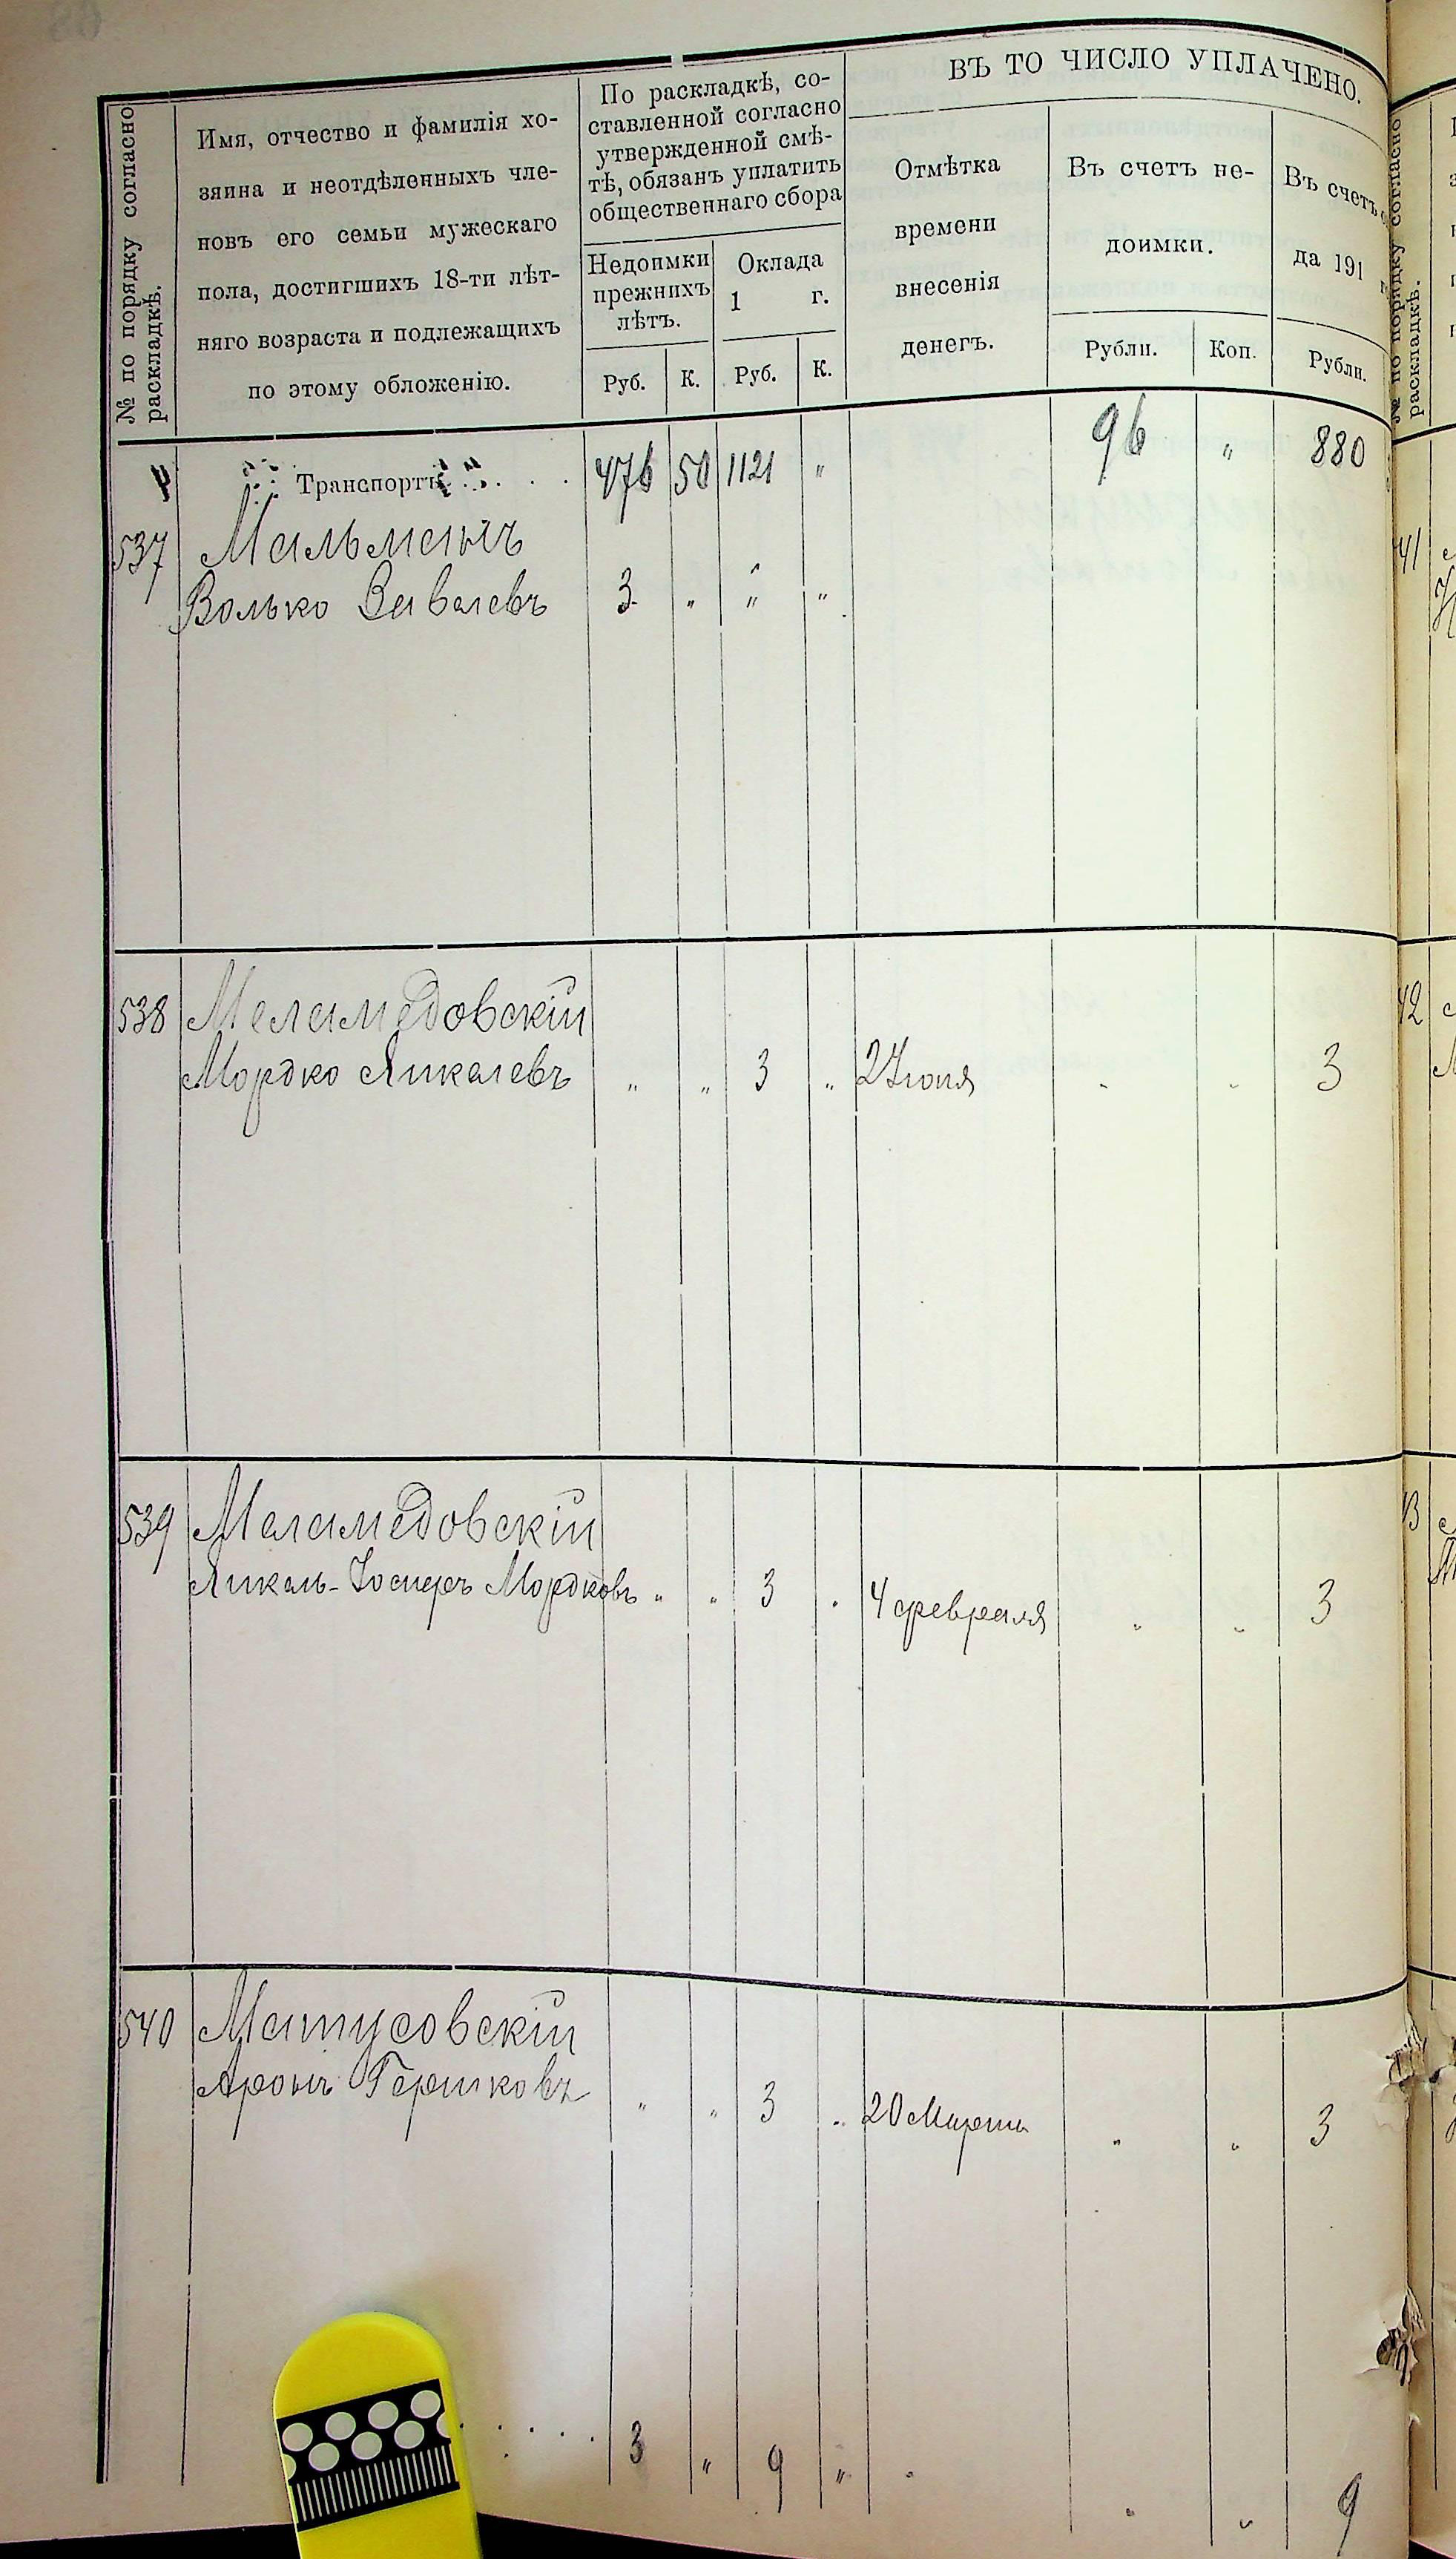 № по порядку согласно
раскладкѣ.
Имя, отчество и фамилія хо-
зяина и неотдѣленныхъ чле-
новъ его семьи мужескаго
пола, достигшихъ 18-ти лѣт-
няго возраста и подлежащихъ
по этому обложенію.
По раскладкѣ, со-
ставленной согласно
утвержденной смѣ-
тѣ, обязанъ уплатить
общественнаго сбора
Недоимки
прежнихъ
лѣтъ.
Оклада
1 г.
Руб. К. Руб. К.
ВЪ ТО ЧИСЛО УПЛАЧЕНО.
Отмѣтка
времени
внесенія
денегъ.
Въ счетъ не-
доимки.
Рубли. Коп.
Въ счетъ
да 191
Рубли.
Транспортъ 476 50 1121 " 96 " 880
537 Мальманъ
Волько Вавелевъ 3 " " "
538 Меламедовскій
Мордко Янкелевъ " " 3 " 2 Іюня " " 3
539 Меламедовскій
Янкель-Іосифъ Мордковъ " " 3 " 4 февраля " " 3
540 Матусовскій
Аронъ Гершковъ " " 3 " 20 Марта " " 3
3 " 9 " " " 9